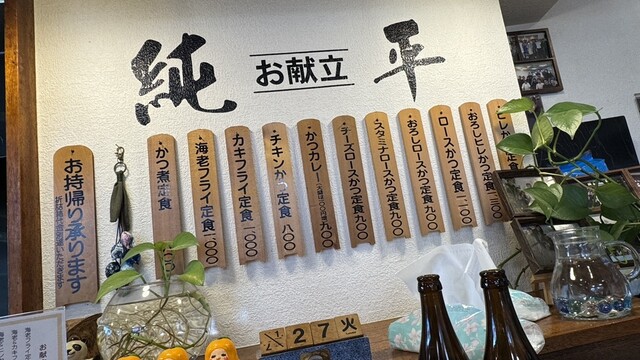 純 お献立 平
ヒレかつ定食
おろしヒレかつ定食 一三〇〇
ロースかつ定食 一一〇〇
おろしロースかつ定食 九〇〇
スタミナロースかつ定食 九〇〇
チーズロースかつ定食 九〇〇
かつカレー 九〇〇
チキンかつ定食 八〇〇
カキフライ定食 一〇〇〇
海老フライ定食 一〇〇〇
かつ煮定食
お持帰り承ります
27 火
お献
海老フライ